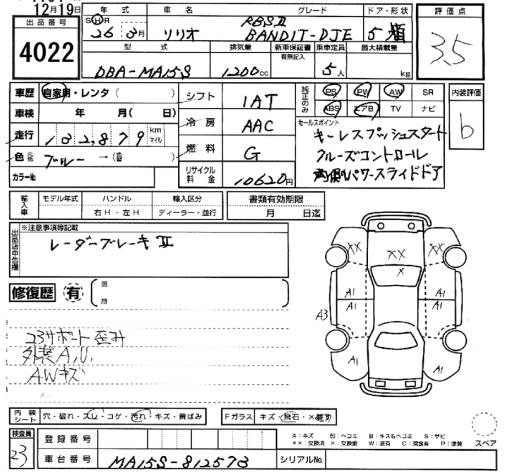 12月19日
出品番号 4022
年式 車名 グレード ドア・形状 評価点
S H 26年 3月 ソリオ RBSⅡ BANDIT-DJE 5 3.5
型式 排気量 新車保証書 有無記入 乗車定員 最大積載量
DBA-MA15S 1200cc 5人 kg
車歴 自家用・レンタ( ) シフト 1AT 純正のみ PS PW AW SR 内装評価
車検 年 月(日) ABS エアB TV ナビ b
走行 132,879 km マイル 冷房 AAC セールスポイント
キーレスプッシュスタート
色 ブルー → ( ) 燃料 G クルーズコントロール
カラー№ リサイクル料金 10620円 両側パワースライドドア
輸入車 モデル年式 ハンドル 輸入区分 書類有効期限
右H・左H ディーラー・並行 月 日迄
※注意事項等記載
レーダーブレーキⅡ
修復歴 有
箇所
23サポート歪み
外装A,U,
AWキズ
XX XX XX X A1 A1 A1 A1 A3
内装シート 穴・破れ・スレ・コゲ・汚れ・キズ・黄ばみ Fガラス キズ・飛石・X
A:キズ U:ヘコミ B:キズ&ヘコミ S:サビ
XX:交換済 X:要交換 W:波有 C:腐食有 P:塗装 スペア
検査員 23 登録番号
車台番号 MA15S-812573 シリアル№